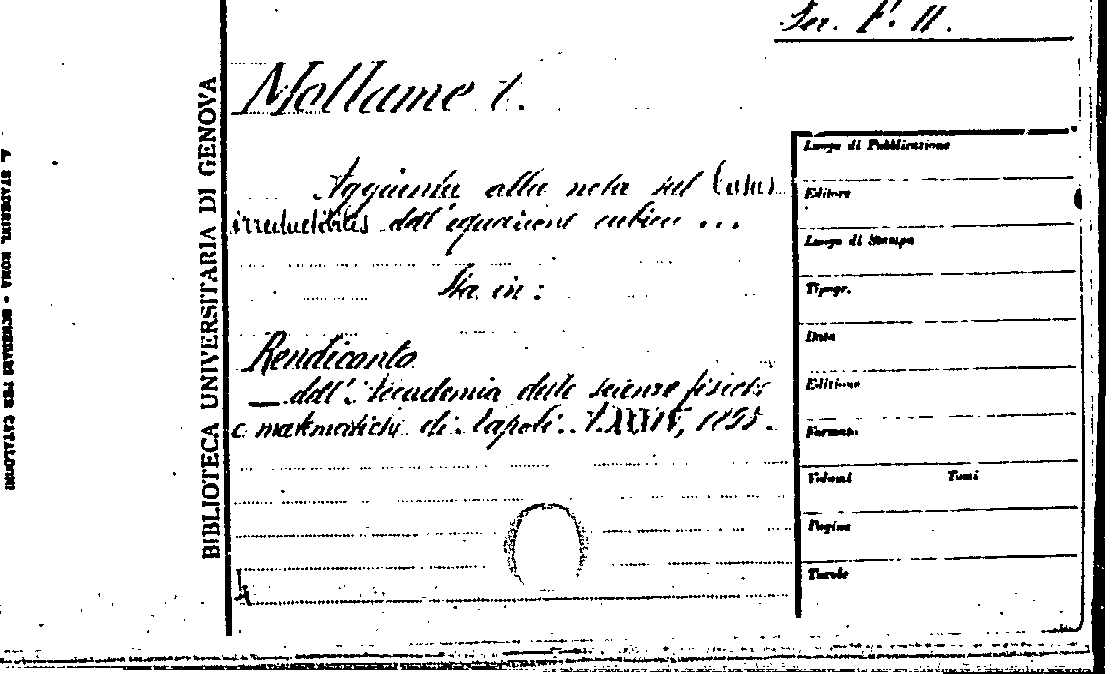 Ser. F. II.
Mollame V.
Aggiunta alla nota sul Casus
irreductibilis dell'equazione cubica ...
Sta in:
Rendiconto
dell'Accademia delle scienze fisiche
e matematiche di Napoli. XXXIV, 1895.
BIBLIOTECA UNIVERSITARIA DI GENOVA
A. STADERINI, ROMA - SCHEDARI PER CATALOGHI
Luogo di Pubblicazione
Editore
Luogo di Stampa
Tipogr.
Data
Edizione
Formato
Volumi Tomi
Pagine
Tavole